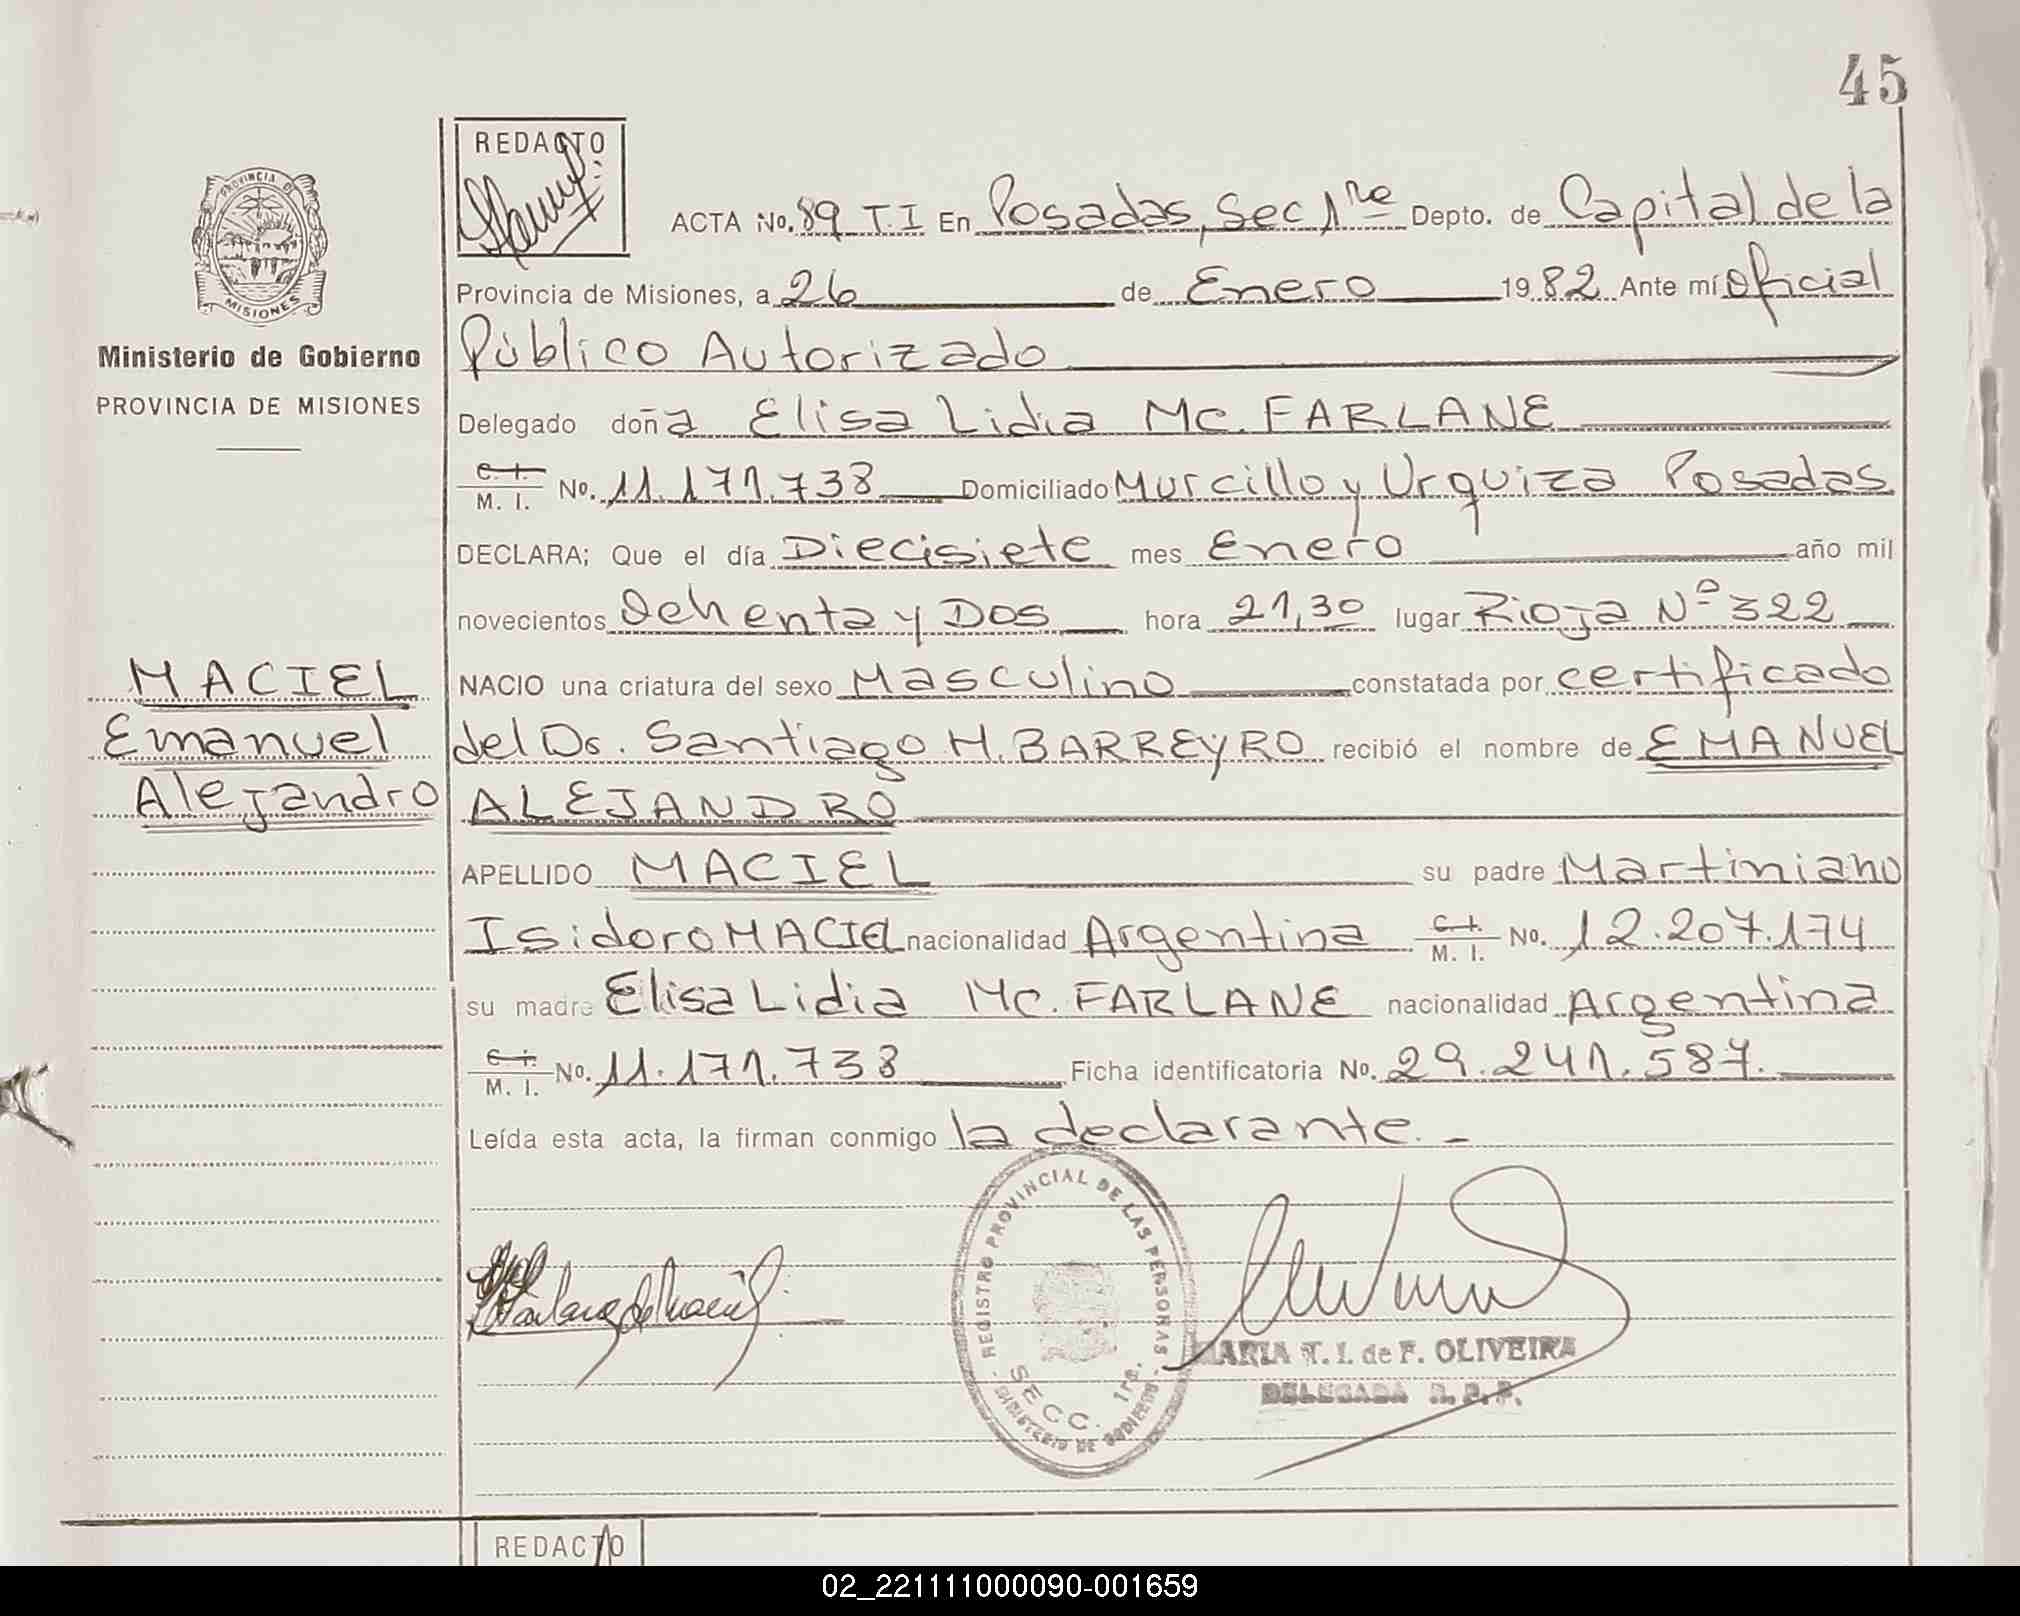 45
REDACTO
PROVINCIA DE
MISIONES
Ministerio de Gobierno
PROVINCIA DE MISIONES
MACIEL
Emanuel
Alejandro
ACTA No. 89 T.I En Posadas, Sec 1ra Depto. de Capital de la
Provincia de Misiones, a 26 de Enero 1982 Ante mí oficial
Público Autorizado
Delegado doña Elisa Lidia Mc. FARLANE
C. I. M. I. No. 11.171.738 Domiciliado Murcillo y Urquiza Posadas
DECLARA; Que el día Diecisiete mes Enero año mil
novecientos Ochenta y Dos hora 21,30 lugar Rioja Nº 322
NACIO una criatura del sexo Masculino constatada por certificado
del Dr. Santiago H. BARREYRO recibió el nombre de EMANUEL
ALEJANDRO
APELLIDO MACIEL su padre Martiniano
Isidoro MACIEL nacionalidad Argentina C. I. M. I. No. 12.207.174
su madre Elisa Lidia Mc. FARLANE nacionalidad Argentina
C. I. M. I. No. 11.171.738 Ficha identificatoria No. 29.241.587.
Leída esta acta, la firman conmigo la declarante.-
REGISTRO PROVINCIAL DE LAS PERSONAS
SECC. 1ra.
MINISTERIO DE GOBIERNO
MARIA T. I. de F. OLIVEIRA
DELEGADA R. P. P.
REDACTO
02_221111000090-001659